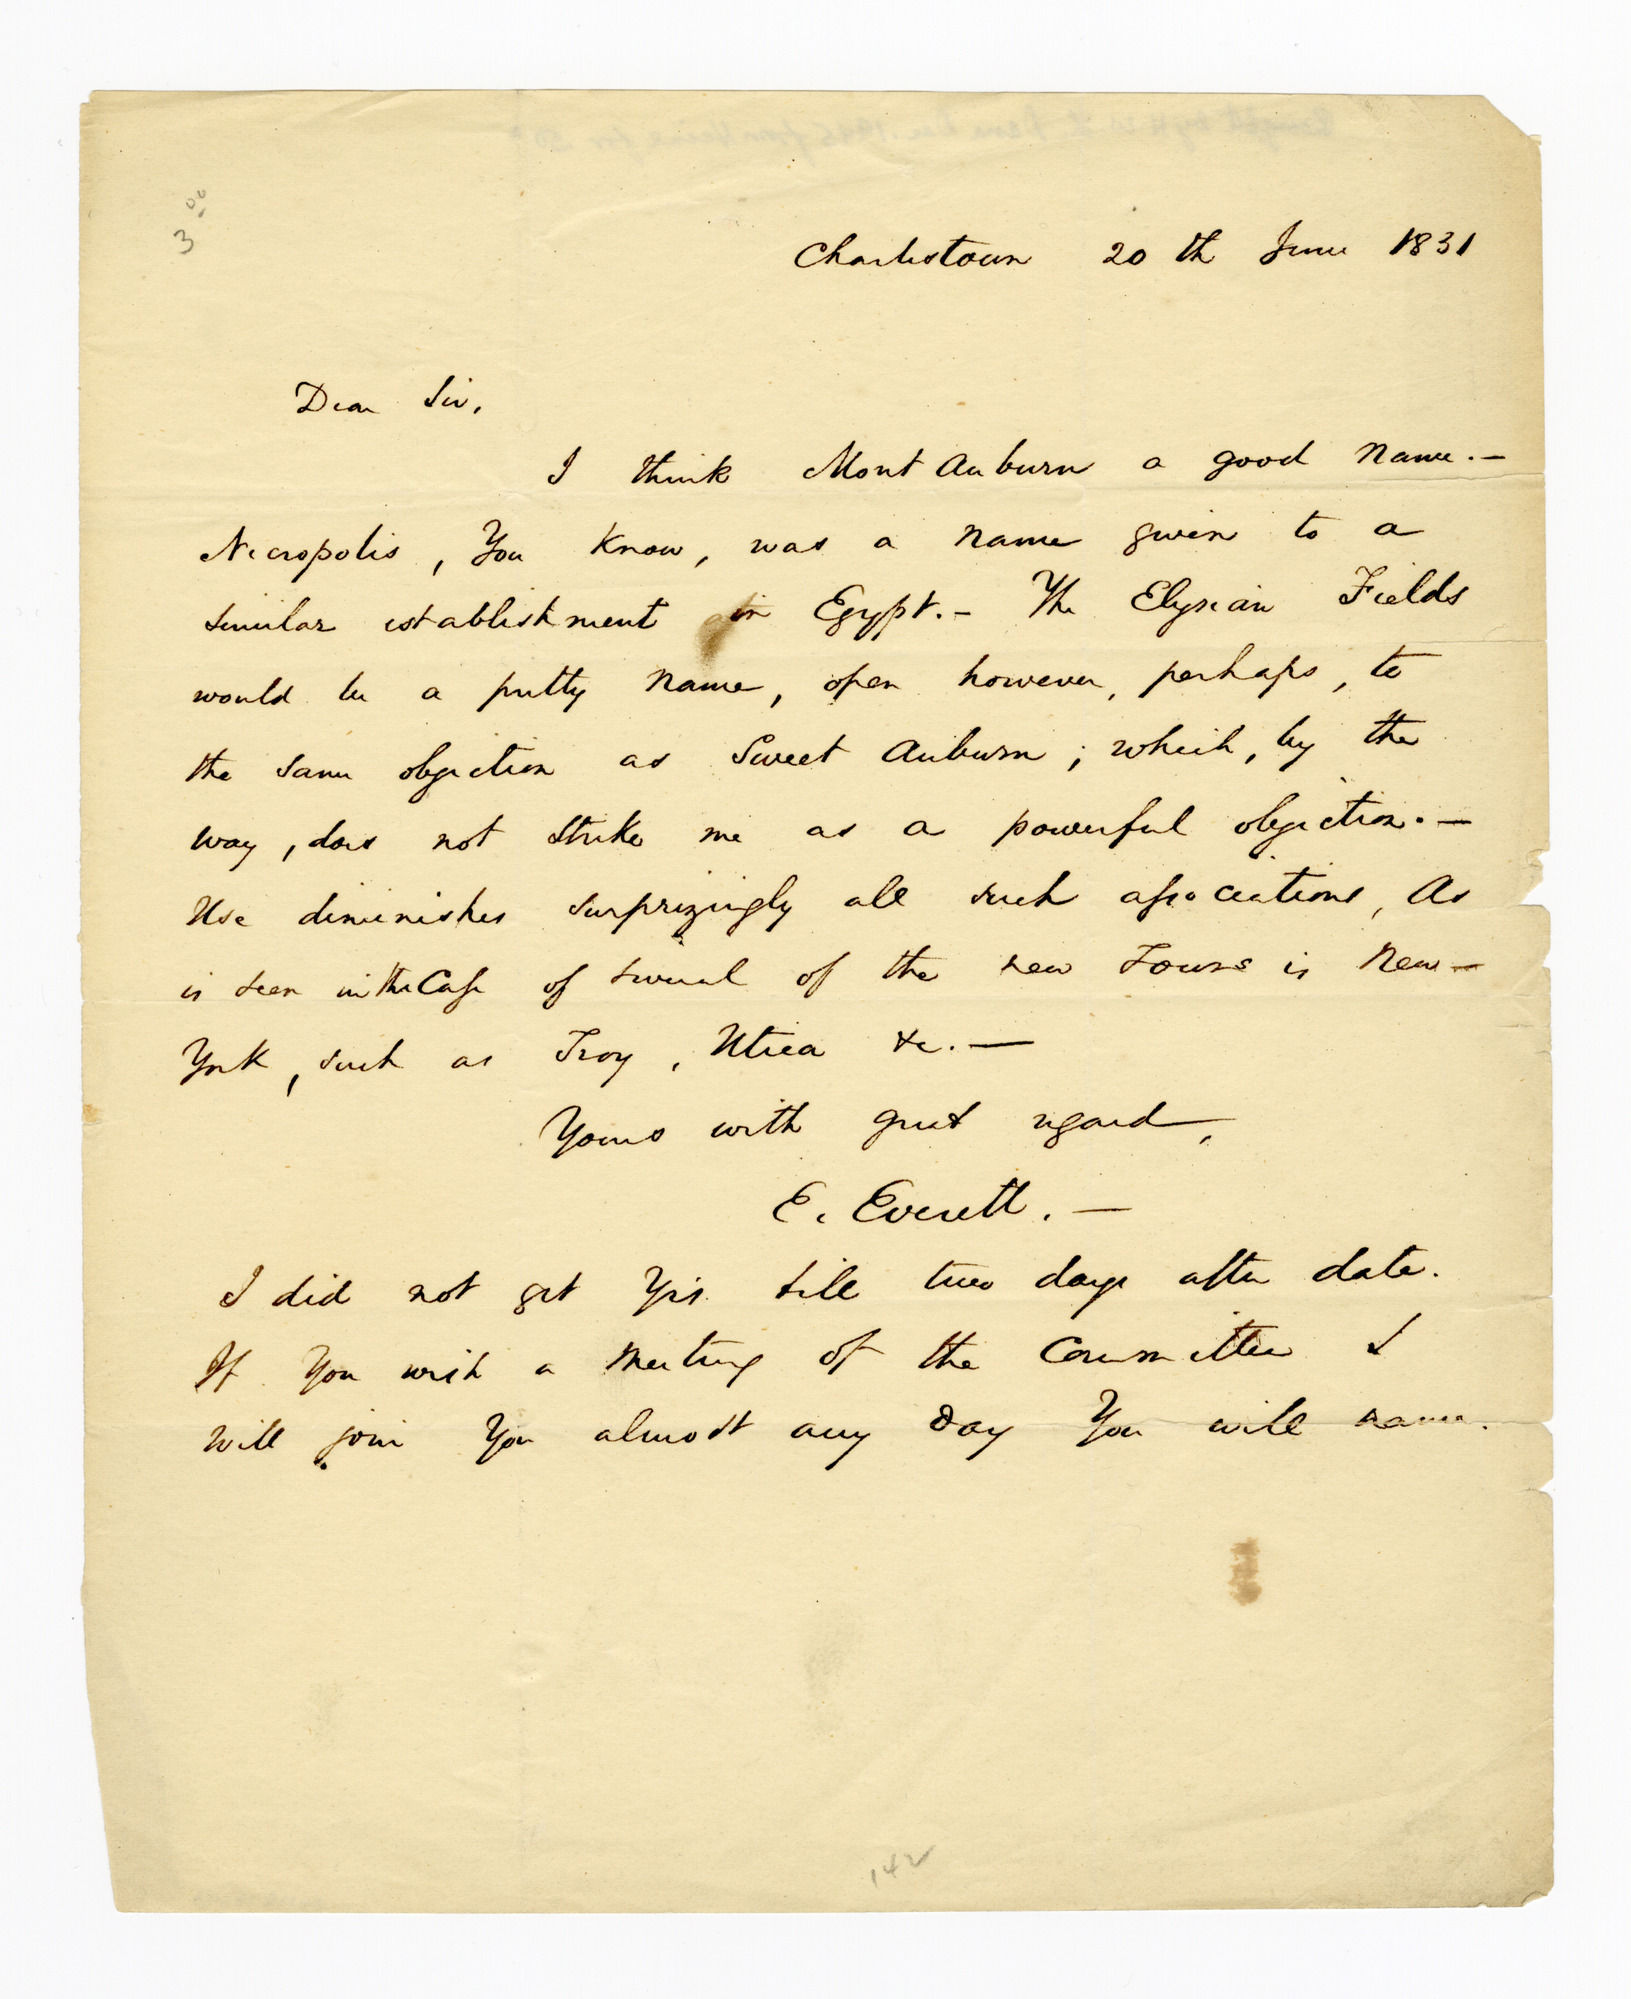 3.00
Charlestown 20th June 1831
Dear Sir,
I think Mont Auburn a good name.—
Necropolis, You know, was a name given to a
similar establishment in Egypt.— The Elysian Fields
would be a pretty name, open however, perhaps, to
the same objection as Sweet Auburn; which, by the
way, does not strike me as a powerful objection.—
Use diminishes surprizingly all such associations, As
is seen in the Case of several of the new Towns in New—
York, such as Troy, Utica &c.—
Yours with great regard,
E. Everett.—
I did not get Yrs. till two days after date.
If You wish a meeting of the Committee I
will join You almost any day You will name.
142